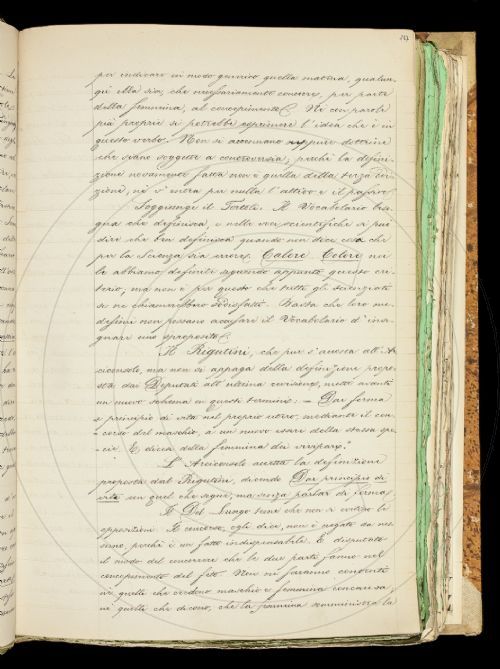 per indicare in modo generico quella materia, qualun-
que ella sia, che necessariamente concorre, per parte
della femmina, al concepimento. Nè con parole
più proprie si potrebbe esprimere l'idea che è in
questo verbo. Non si accennano neppure dottrine
che siano soggette a controversia, perchè la defini-
zione novamente fatta non è quella della terza edi-
zione, nè s'entra per nulla l'attivo e il passivo.
Soggiunge il Tortoli. Il Vocabolario biso-
gna che definisca, e nelle voci scientifiche si può
dire che ben definisca quando non dice cosa che
per la scienza sia errore. Calore Colore noi
lo abbiamo definiti seguendo appunto questo cri-
terio, ma non è per questo che tutti gli scienziati
se ne chiamerebbero sodisfatti. Basta che loro me-
desimi non possano accusare il Vocabolario d'inse-
gnare uno sproposito.
Il Rigutini, che pur s'accosta all'Ar-
ciconsolo, ma non si appaga della definizione propo-
sta dai Deputati all'ultima revisione, mette avanti
un nuovo schema in questi termini: = Dar forma
e principio di vita nel proprio utero, mediante il con-
corso del maschio, a un nuovo essere della stessa spe-
cie. E dicesi della femmina dei vivipari.
L'Arciconsolo accetta la definizione
proposta dal Rigutini, dicendo Dar principio di
vita con quel che segue, ma senza parlar di forma.
Il Del Lungo tiene che non si evitino le
opposizioni. Il concorso, egli dice, non è negato da nes-
suno, perchè è un fatto indispensabile. È disputato
il modo del concorrere che le due parti fanno nel
concepimento del feto. Non mi faranno contenti
nè quelli che credono maschio e femmina concausa,
nè quelli che dicono, che la femmina somministra la